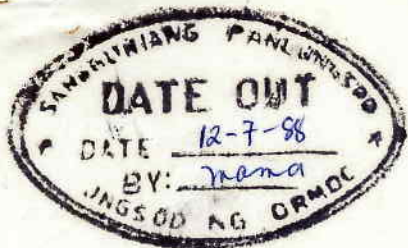 SANGGUNIANG PANLUNGSOD
DATE OUT
DATE 12-7-88
BY: mama
UNGSOD NG ORMOC